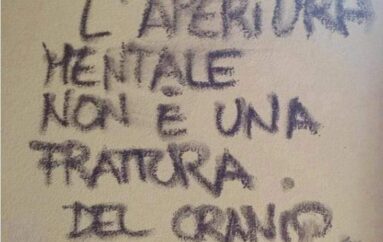 L'APERTURA
MENTALE
NON È UNA
FRATTURA.
DEL CRANIO.